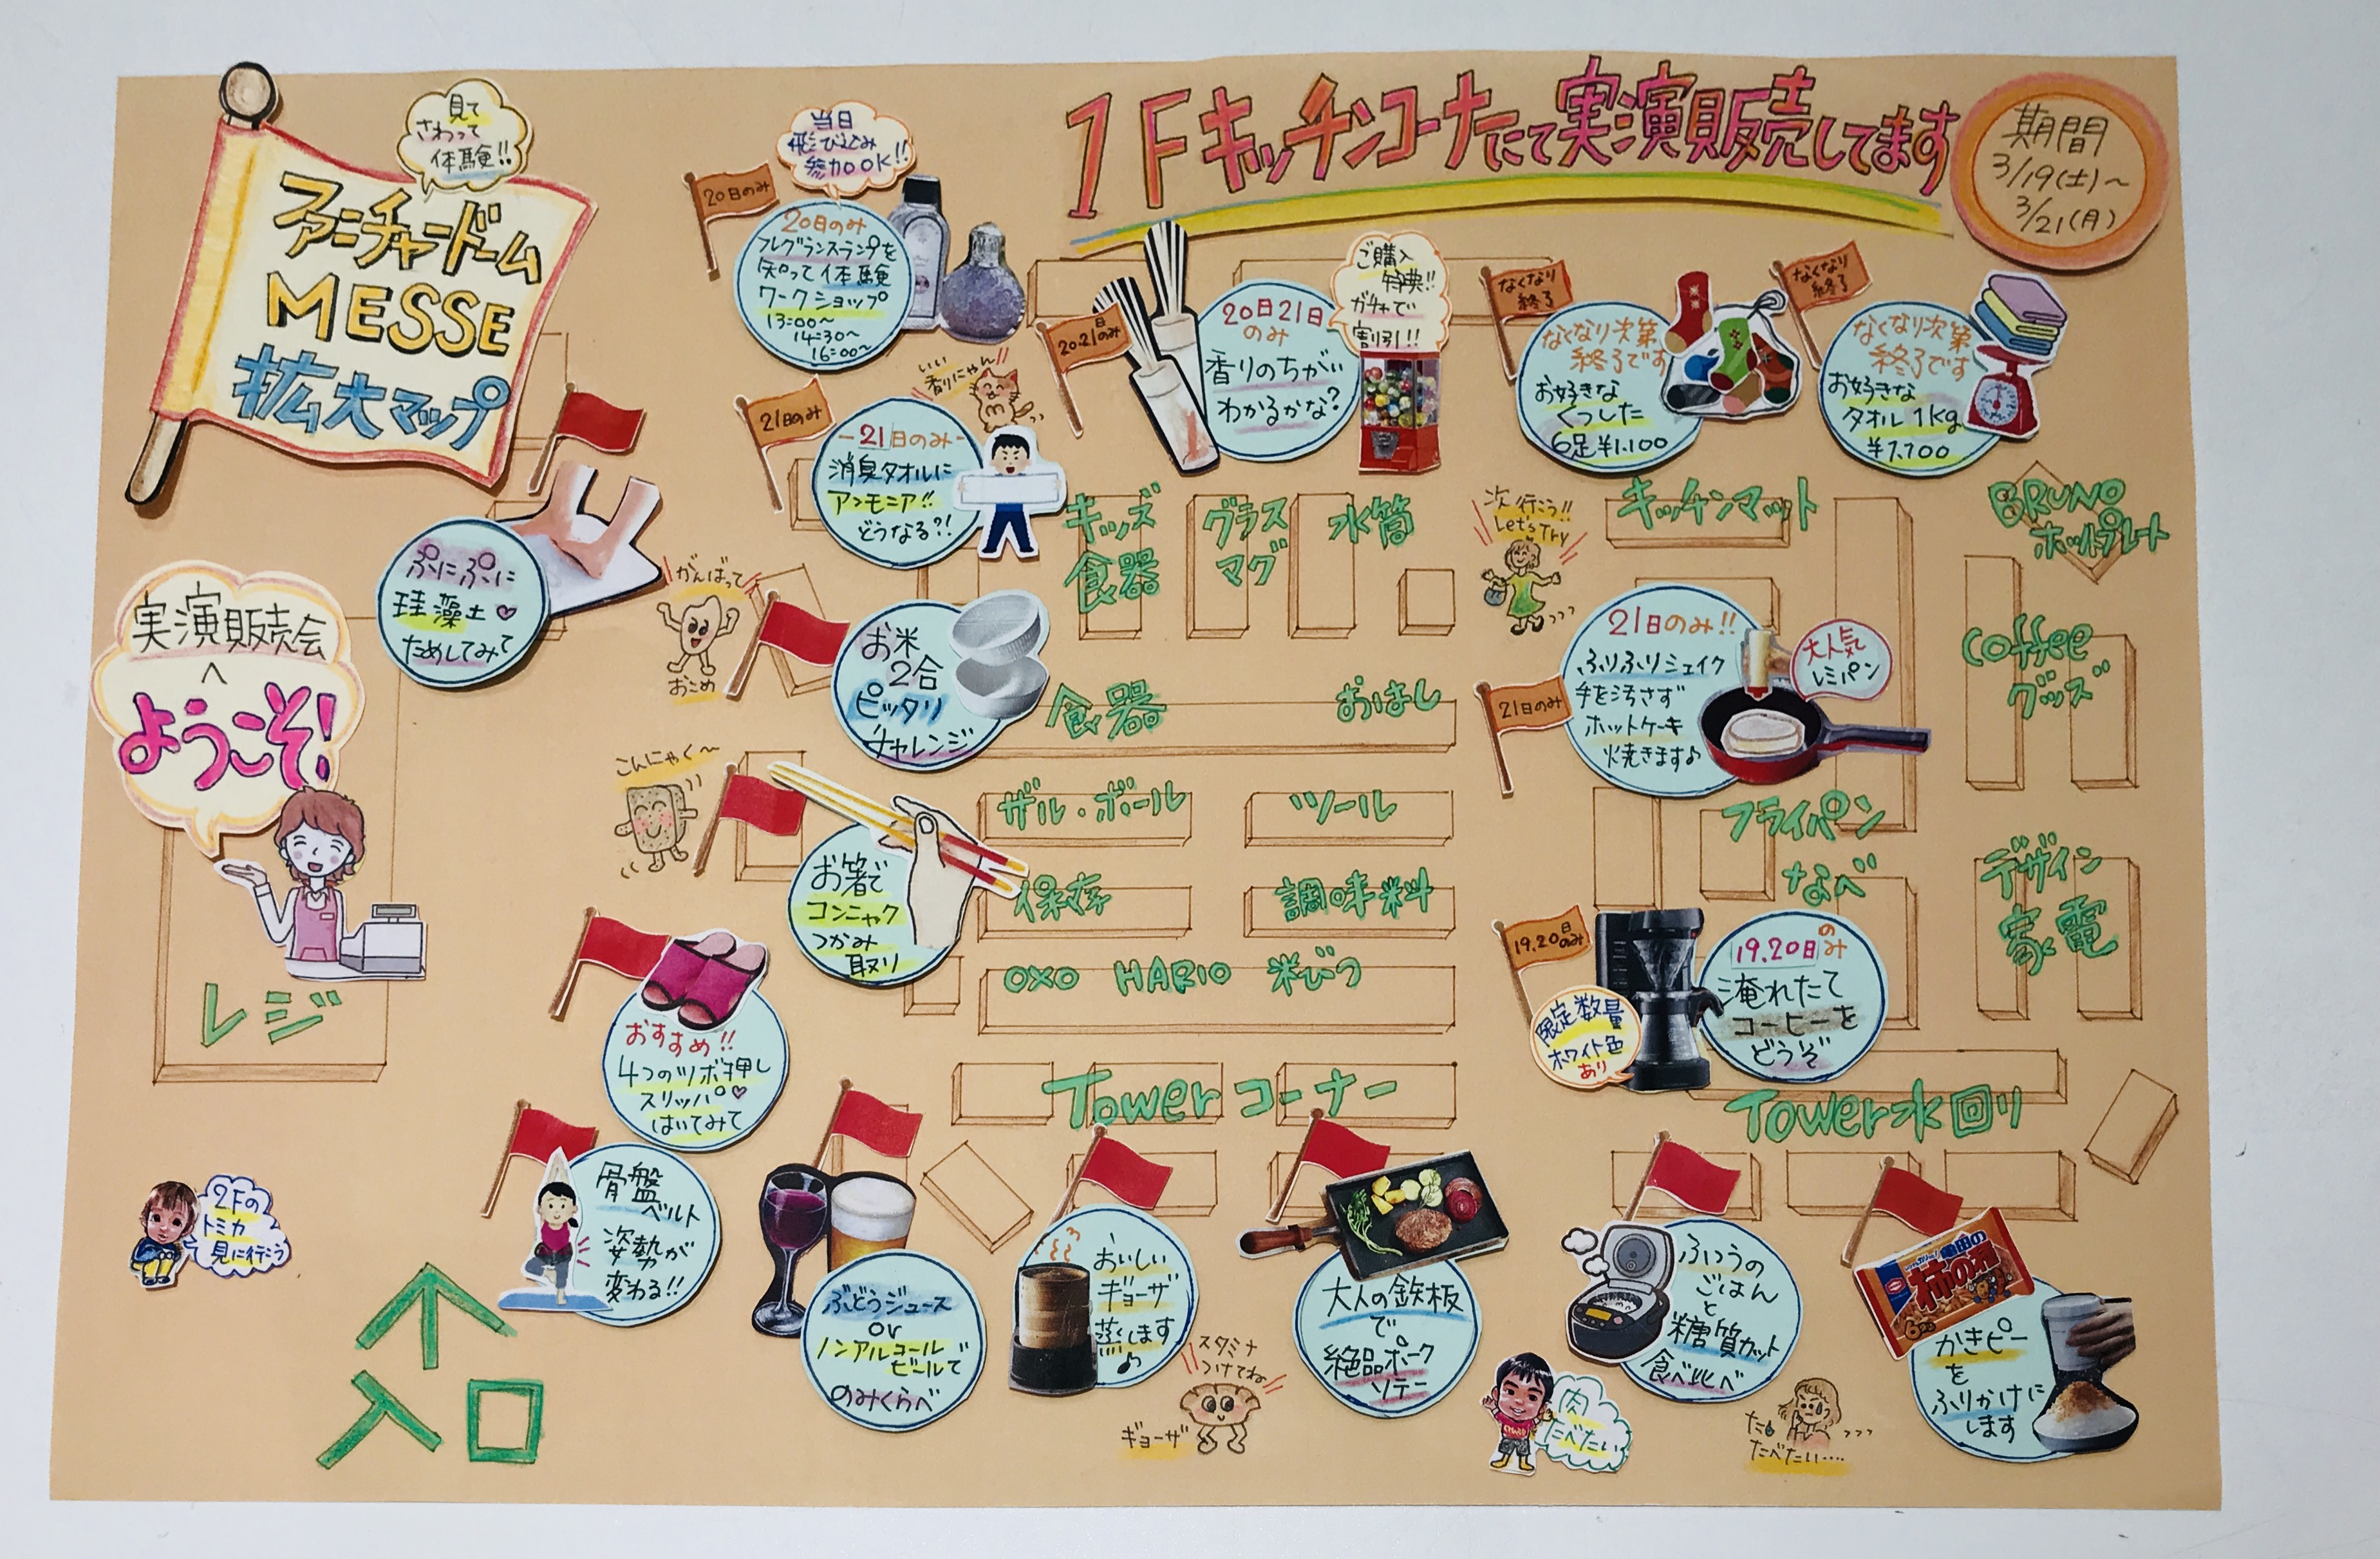 見て
さわって
体験!!
ファニチャードーム
MESSE
拡大マップ
1Fキッチンコーナーにて実演販売してます
期間
3/19(土)~
3/21(月)
当日
飛び込み
参加OK!!
20日のみ
20日のみ
フレグランスランプを
知って体験
ワークショップ
13:00~
14:30~
16:00~
いい
香りにゃん!!
21日のみ
-21日のみ-
消臭タオルに
アンモニア!!
どうなる?!
20.21日のみ
20日21日
のみ
香りのちがい
わかるかな?
ご購入
特典!!
ガチャで
割引!!
なくなり
終了
なくなり次第
終了です
お好きな
くつした
6足¥1,100
なくなり
終了
なくなり次第
終了です
お好きな
タオル1kg
¥7,700
ぷにぷに
珪藻土♡
ためしてみて
実演販売会
へ
ようこそ!
レジ
がんばって
おこめ
お米
2合
ピッタリ
チャレンジ
こんにゃく~
お箸で
コンニャク
つかみ
取り
キッズ
食器
グラス
マグ
水筒
次行こう!!
Let's Try
キッチンマット
BRUNO
ホットプレート
食器 おはし
ザル・ボール ツール
保存 調味料
OXO HARIO 米びつ
Towerコーナー
21日のみ
21日のみ!!
ふりふりシェイク
手を汚さず
ホットケーキ
焼きます♪
大人気
レミパン
Coffee
グッズ
フライパン
なべ
デザイン
家電
19.20日のみ
19.20日のみ
淹れたて
コーヒーを
どうぞ
限定数量
ホワイト色
あり
Tower水回り
おすすめ!!
4つのツボ押し
スリッパ♡
はいてみて
骨盤
ベルト
姿勢が
変わる!!
2Fの
トミカ
見に行こう
入口
ぶどうジュース
or
ノンアルコール
ビールで
のみくらべ
おいしい
ギョーザ
蒸します
♪
スタミナ
つけてね
ギョーザ
大人の鉄板
で
絶品ポーク
ソテー
肉
たべたい
ふつうの
ごはん
と
糖質カット
食べ比べ
た
たべたい....
亀田の
柿の種
6袋
かきピー
を
ふりかけに
します